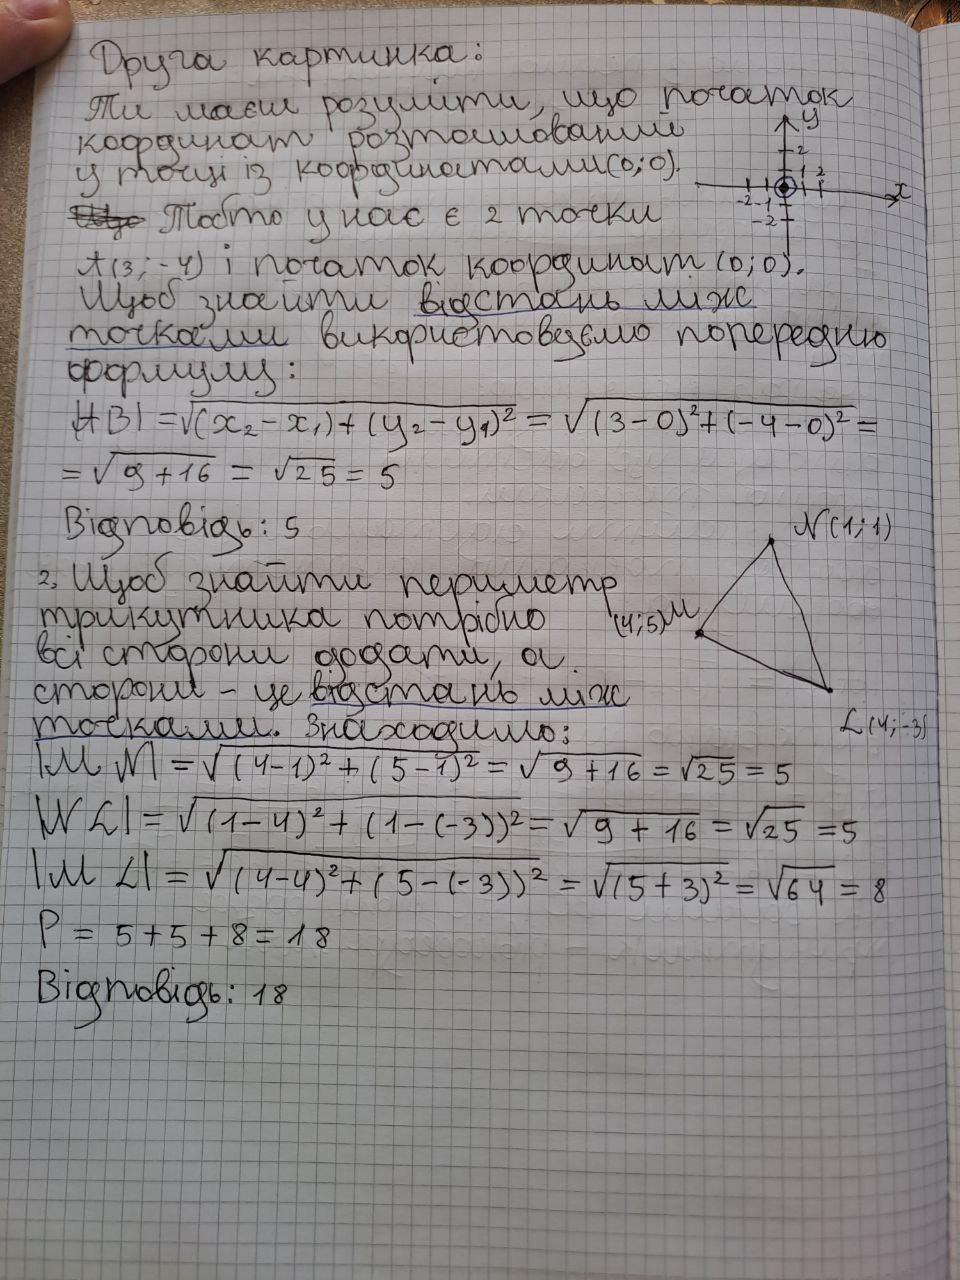 Друга картинка:
Ти маєш розуміти, що початок
координат розташований
у точці із координатами (0; 0).
Тобто у нас є 2 точки
A(3; -4) і початок координат (0; 0).
y
2
1 2
-2 -1
-2
x
Щоб знайти відстань між
точками використовуємо попередню
формулу:
|AB| = √(x₂ - x₁) + (y₂ - y₁)² = √(3-0)² + (-4-0)² =
= √9+16 = √25 = 5
Відповідь: 5
2. Щоб знайти периметр
трикутника потрібно
всі сторони додати, а
сторони - це відстань між
точками. Знаходимо:
N(1; 1)
(4; 5) M
L(4; -3)
|MN| = √(4-1)² + (5-1)² = √9+16 = √25 = 5
|NL| = √(1-4)² + (1-(-3))² = √9+16 = √25 = 5
|ML| = √(4-4)² + (5-(-3))² = √(5+3)² = √64 = 8
P = 5+5+8 = 18
Відповідь: 18